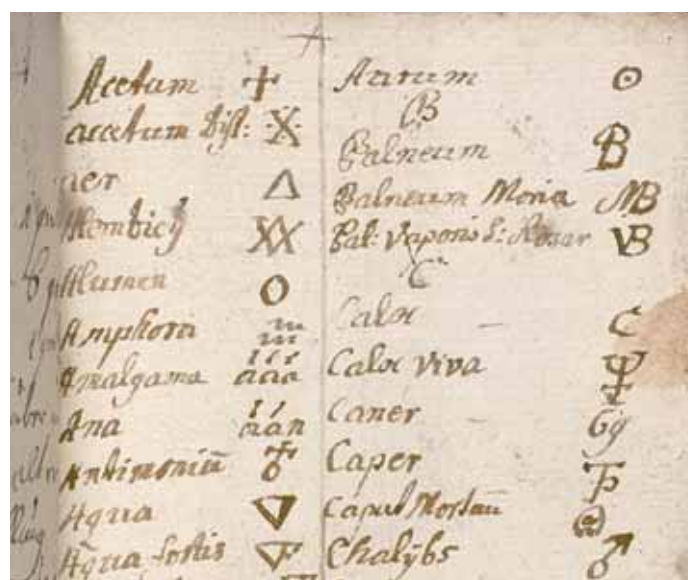 Acetum
accetum dist:
aer
Alembicÿ
Alumen
Amphora
Amalgama aaa
Ana aan
Antimoniū
Aqua
Aqua fortis
Aurum
B
Balneum B
Balneum Moria MB
Bal: Vaporis L: Rosar VB
C
Calx C
Calx viva
Caner
Caper
Caput Mortūu
Chalÿbs